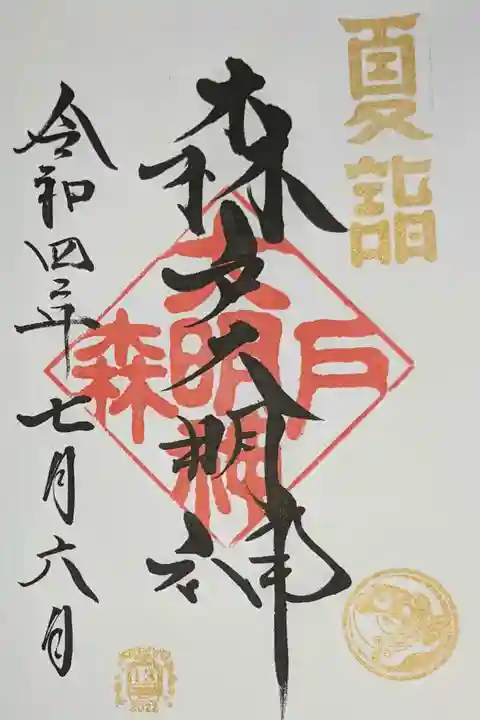 夏詣
森戸大明神
森戸大明神
令和四年七月六日
2022